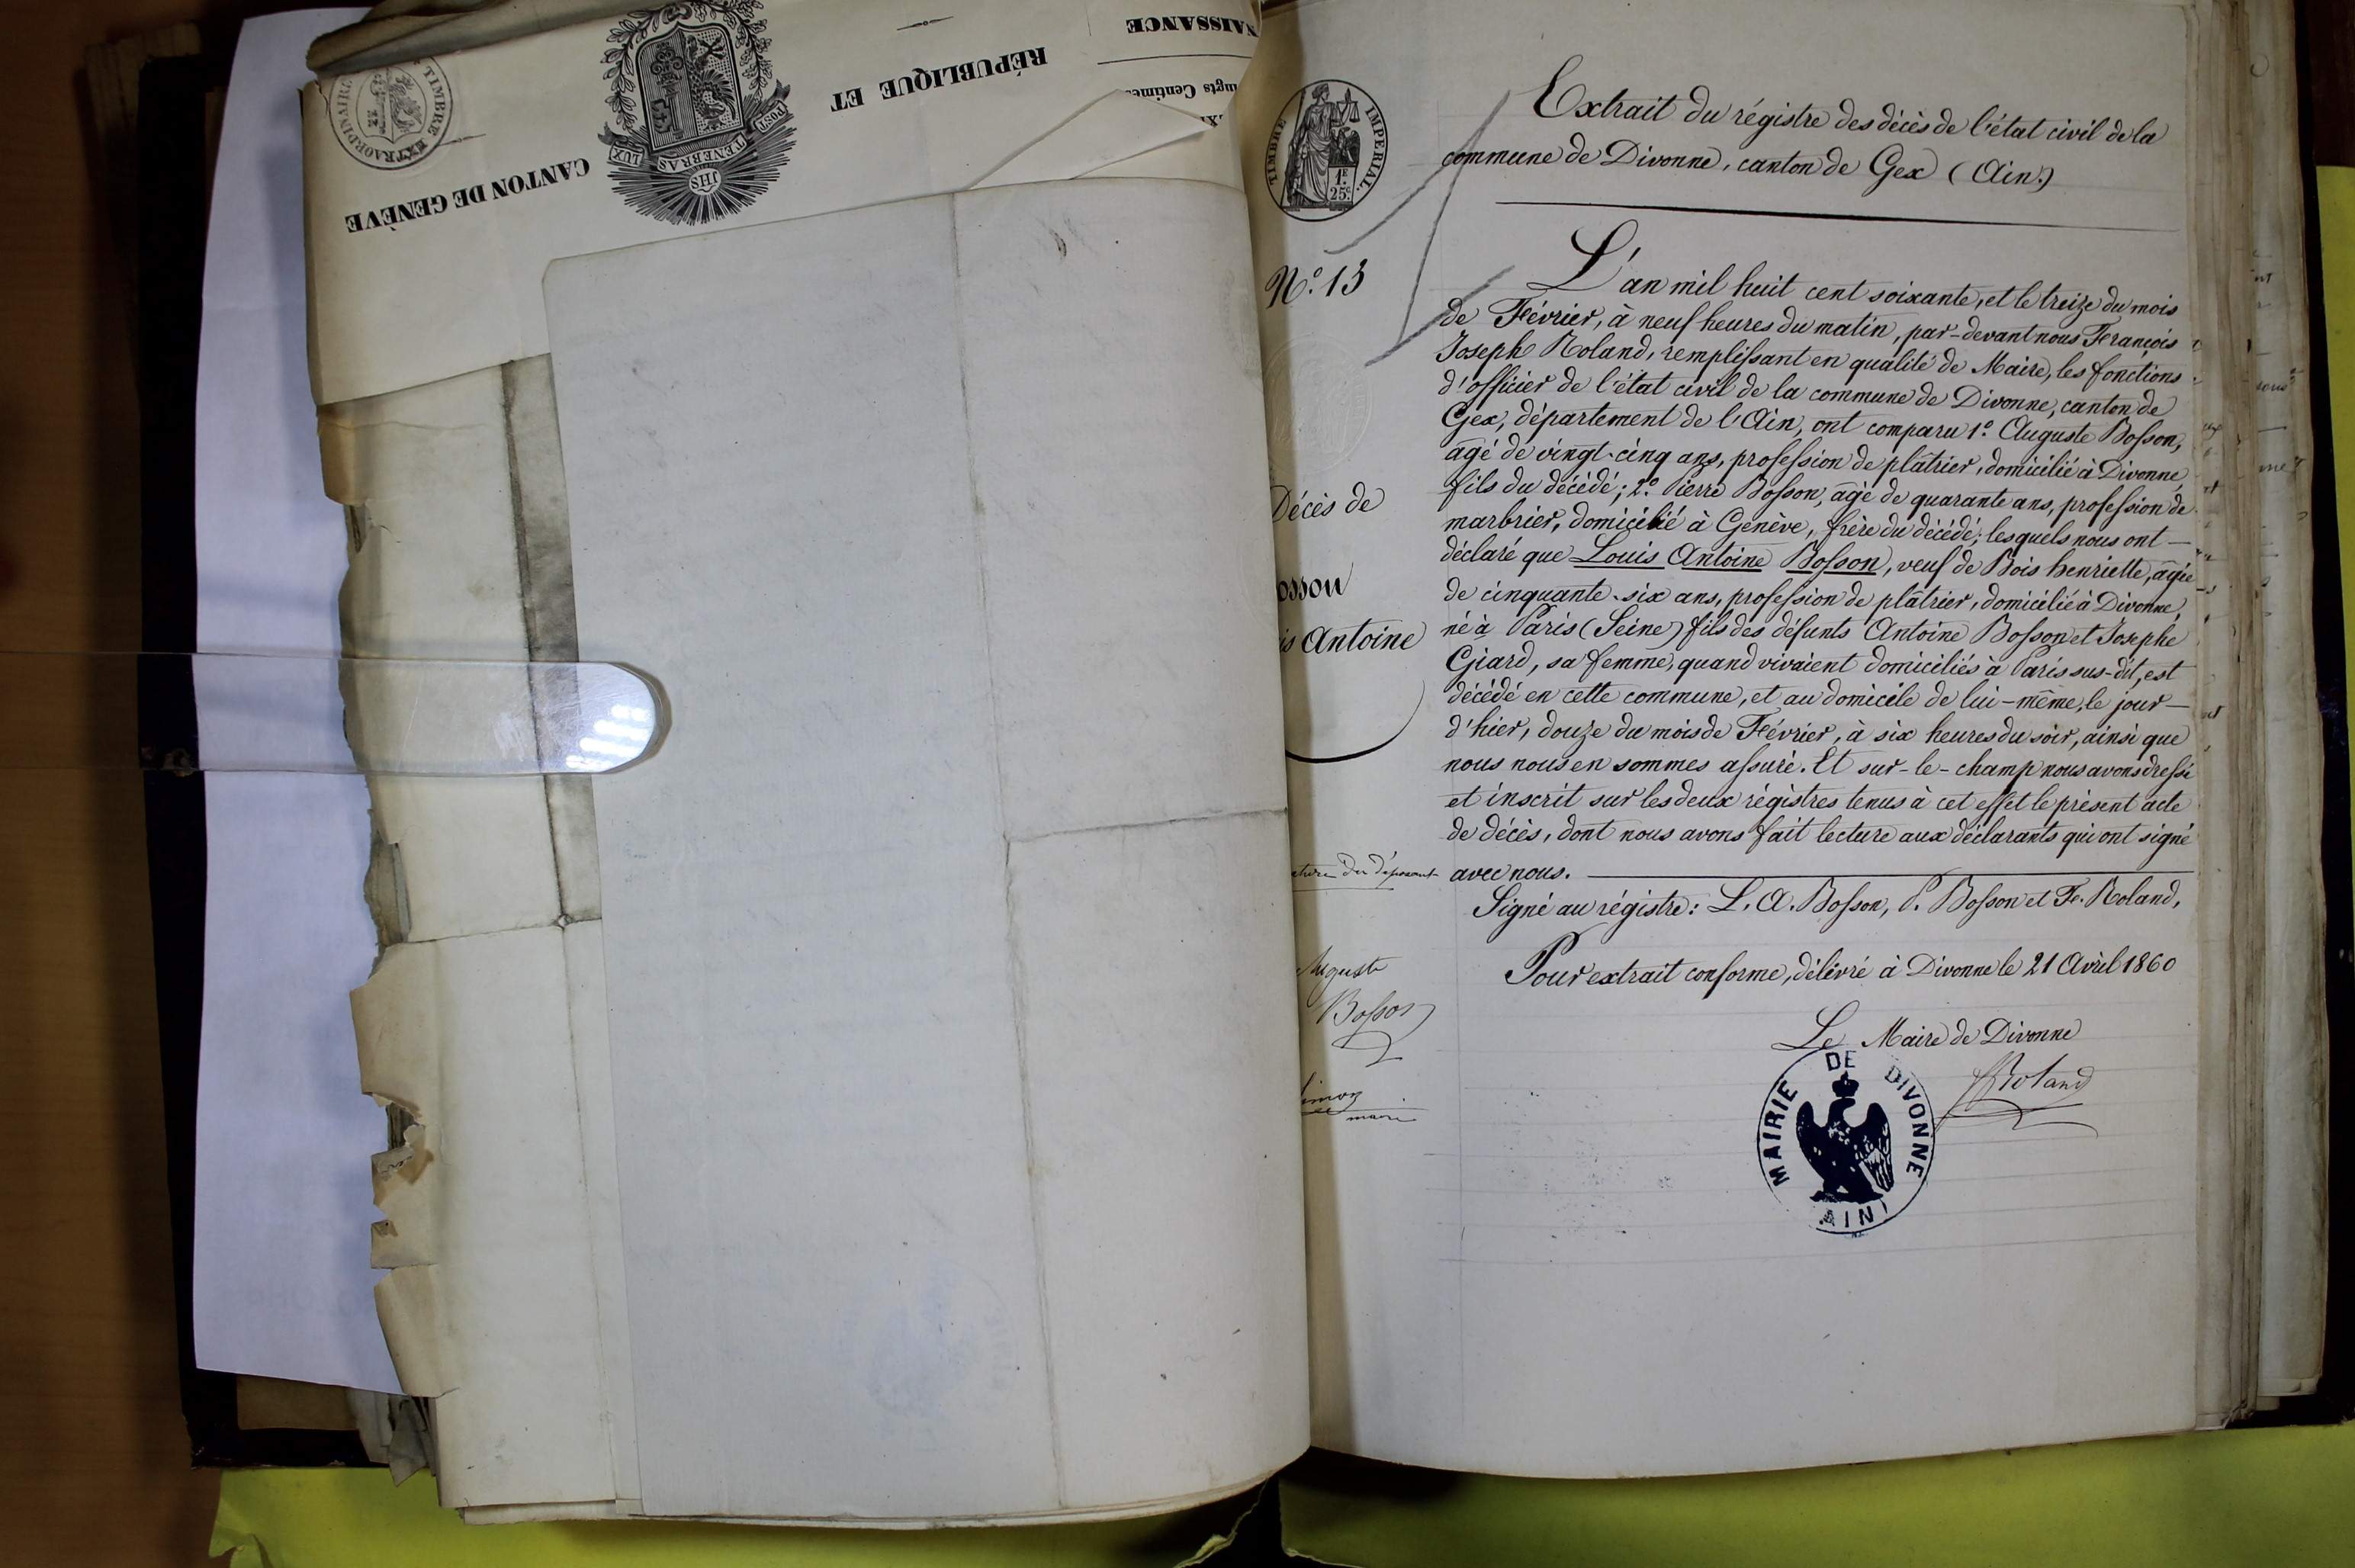 NAISSANCE
RÉPUBLIQUE ET
CANTON DE GENÈVE
TIMBRE EXTRAORDINAIRE
POST TENEBRAS LUX
JHS
Centimes
TIMBRE IMPÉRIAL
1F
25c.
Extrait du régistre des décès de l'état civil de la
commune de Divonne, canton de Gex (Ain.)
N.º 13
L'an mil huit cent soixante, et le treize du mois
de Février, à neuf heures du matin, par-devant nous François
Joseph Roland, remplissant en qualité de Maire, les fonctions
d'officier de l'état civil de la commune de Divonne, canton de
Gex, département de l'Ain, ont comparu 1º. Auguste Bosson,
âgé de vingt-cinq ans, profession de plâtrier, domicilié à Divonne,
fils du décédé; 2º. Pierre Bosson, âgé de quarante ans, profession de
marbrier, domicilié à Genève, frère du décédé; lesquels nous ont —
déclaré que Louis Antoine Bosson, veuf de Bois henriette, âgée
de cinquante-six ans, profession de plâtrier, domicilié à Divonne,
né à Paris (Seine) fils des défunts Antoine Bosson et Josephe
Giard, sa femme, quand vivaient domiciliés à Paris sus-dit, est
décédé en cette commune, et au domicile de lui-même, le jour —
d'hier, douze du mois de Février, à six heures du soir, ainsi que
nous nous en sommes assuré. Et sur-le-champ nous avons dressé
et inscrit sur les deux régistres tenus à cet effet le présent acte
de décès, dont nous avons fait lecture aux déclarants qui ont signé
avec nous.
Signé au régistre: L. A. Bosson, P. Bosson et F. Roland,
Pour extrait conforme, délivré à Divonne le 21 Avril 1860
Le Maire de Divonne
FRoland
MAIRIE DE DIVONNE
(AIN)
Décès de
osson
is Antoine
du déposant
Auguste
Bosson
maire